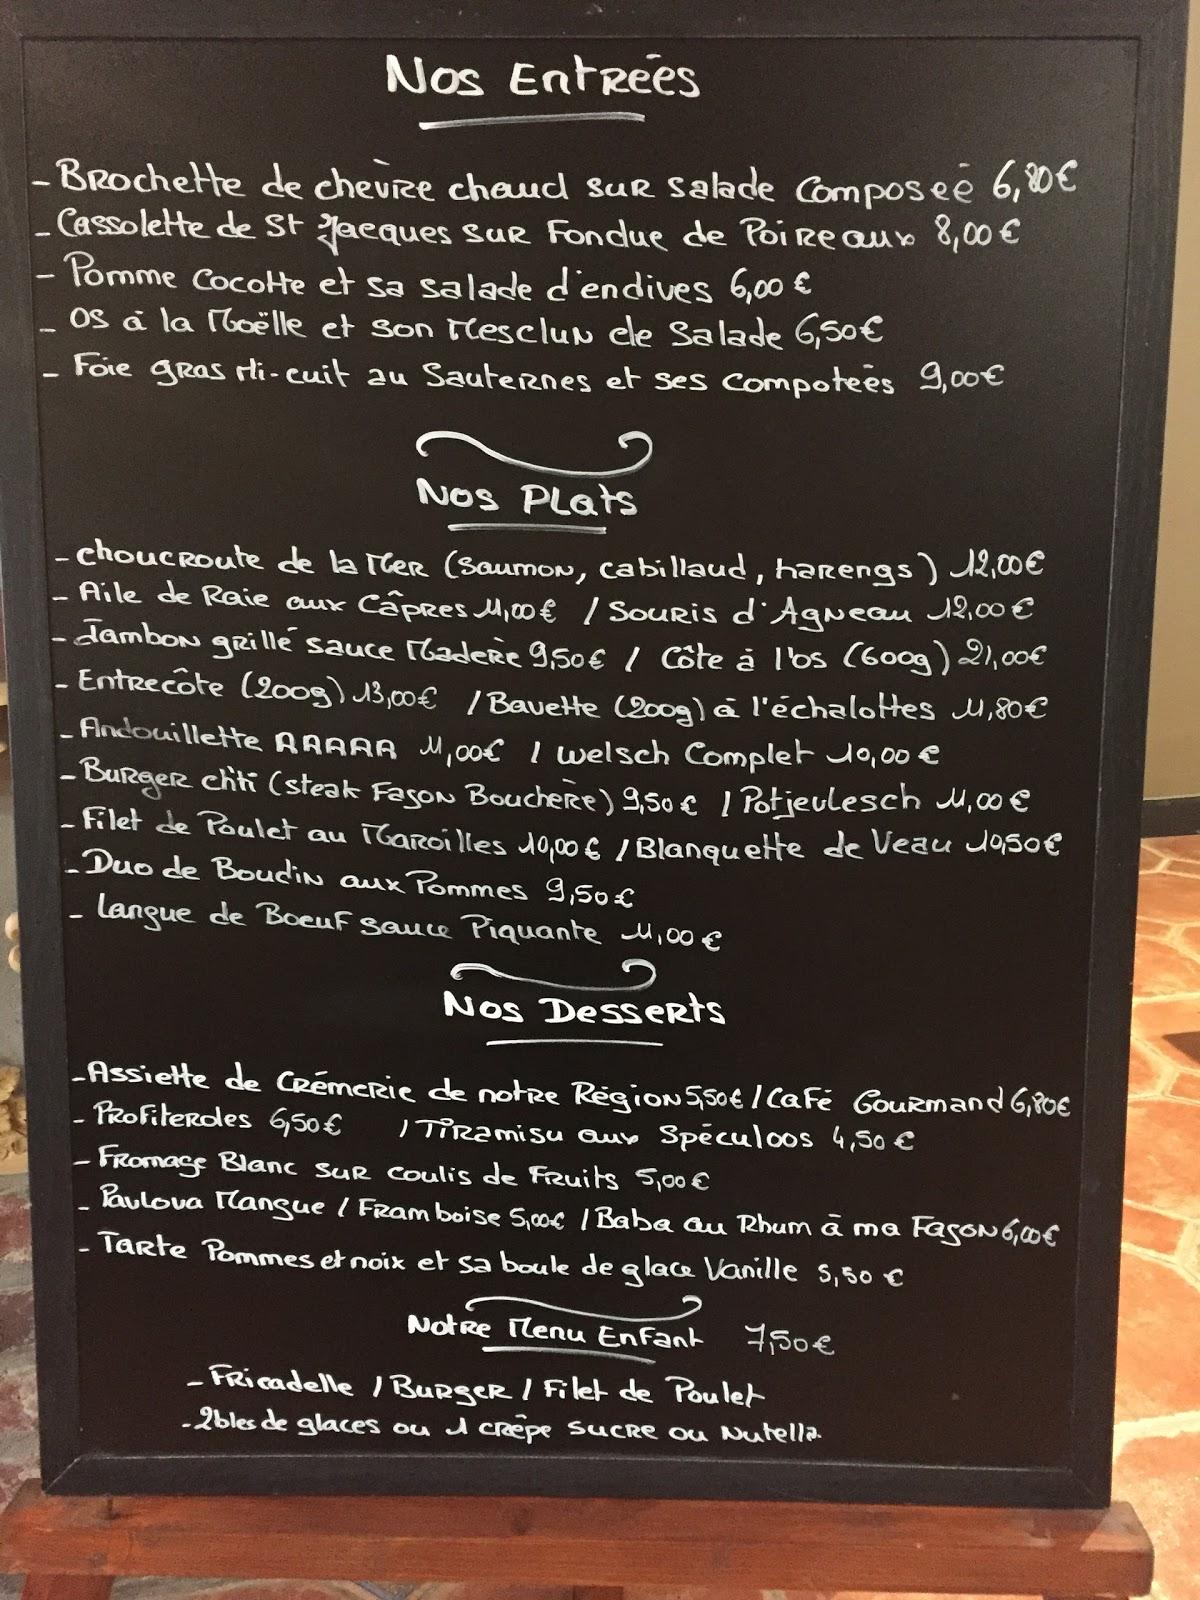 Nos Entrées
- Brochette de chèvre chaud sur salade composée 6,80€
- Cassolette de St Jacques sur Fondue de Poireaux 8,00€
- Pomme Cocotte et sa salade d'endives 6,00€
- Os à la Moëlle et son Mesclun de Salade 6,50€
- Foie gras Mi-cuit au Sauternes et ses compotées 9,00€
Nos Plats
- choucroute de la Mer (Saumon, cabillaud, harengs) 12,00€
- Aile de Raie aux Câpres 11,00€ / Souris d'Agneau 12,00€
- Jambon grillé sauce Madère 9,50€ / Côte à l'os (600g) 21,00€
- Entrecôte (200g) 13,00€ / Bavette (200g) à l'échalottes 11,80€
- Andouillette AAAAA 11,00€ / Welsch Complet 10,00€
- Burger ch'ti (steak Façon Bouchère) 9,50€ / Potjevlesch 11,00€
- Filet de Poulet au Maroilles 10,00€ / Blanquette de Veau 10,50€
- Duo de Boudin aux Pommes 9,50€
- Langue de Boeuf sauce Piquante 11,00€
Nos Desserts
- Assiette de Crémerie de notre Région 5,50€ / Café Gourmand 6,80€
- Profiteroles 6,50€ / Tiramisu aux Spéculoos 4,50€
- Fromage Blanc sur coulis de Fruits 5,00€
- Pavlova Mangue / Framboise 5,00€ / Baba au Rhum à ma Façon 6,00€
- Tarte Pommes et noix et sa boule de glace Vanille 5,50€
Notre Menu Enfant 7,50€
- Fricadelle / Burger / Filet de Poulet
- 2bles de glaces ou 1 crêpe sucre ou Nutella.